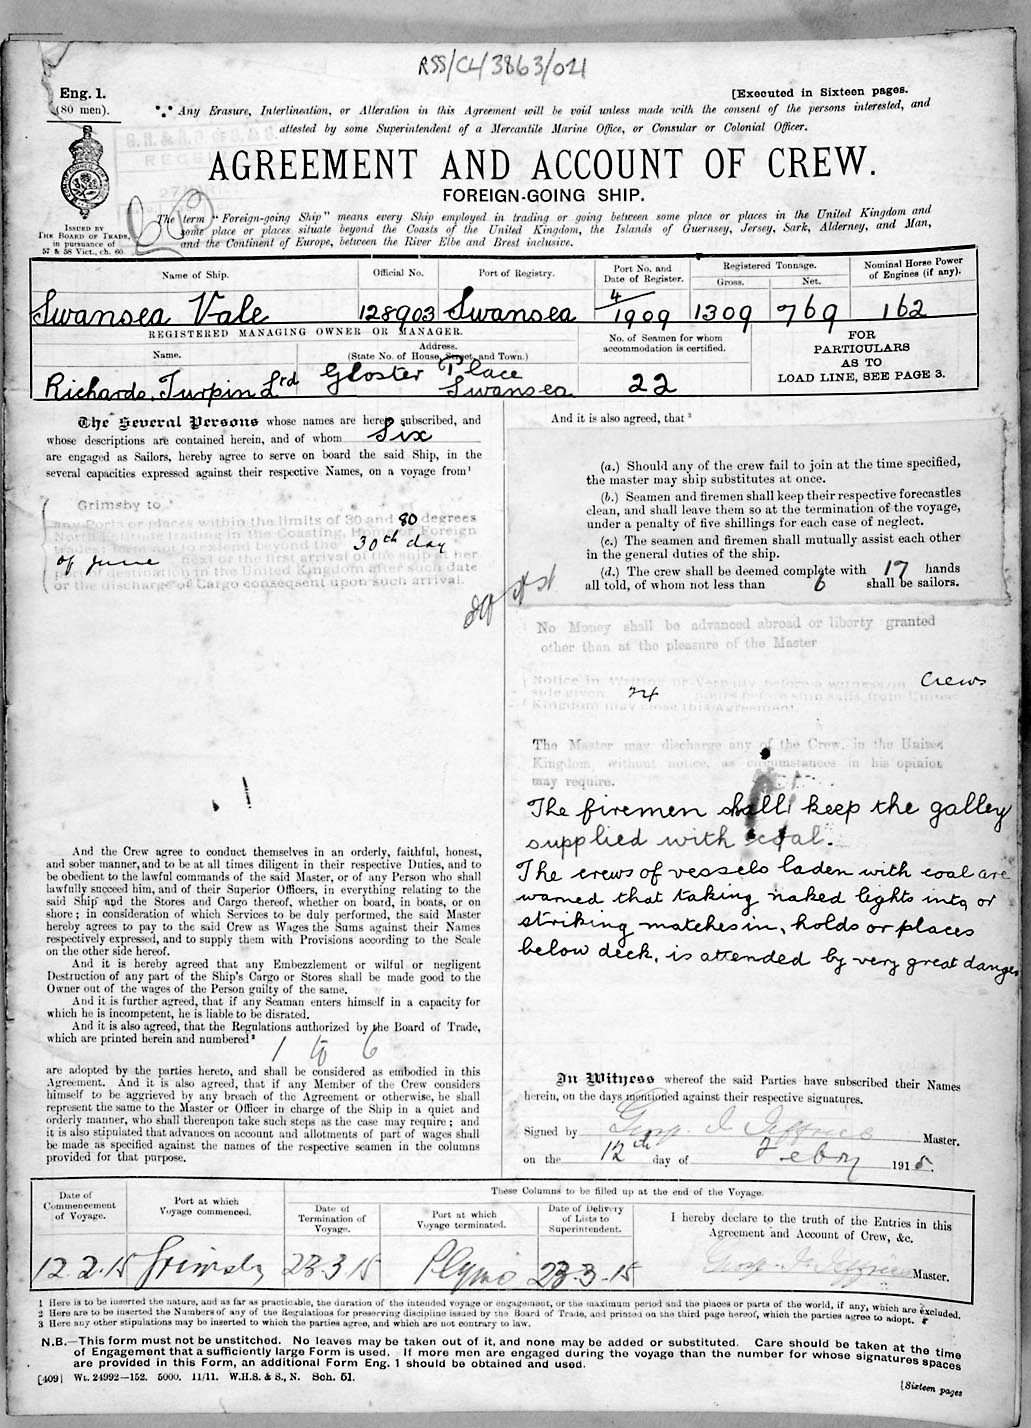 RSS/CL/3863/021
Eng. 1.
(80 men).
[Executed in Sixteen pages.
Any Erasure, Interlineation, or Alteration in this Agreement will be void unless made with the consent of the persons interested, and
attested by some Superintendent of a Mercantile Marine Office, or Consular or Colonial Officer.
AGREEMENT AND ACCOUNT OF CREW.
FOREIGN-GOING SHIP.
ISSUED BY
THE BOARD OF TRADE,
in pursuance of
57 & 58 Vict., ch. 60.
The term "Foreign-going Ship" means every Ship employed in trading or going between some place or places in the United Kingdom and
some place or places situate beyond the Coasts of the United Kingdom, the Islands of Guernsey, Jersey, Sark, Alderney, and Man,
and the Continent of Europe, between the River Elbe and Brest inclusive.
Name of Ship. Official No. Port of Registry. Port No. and Date of Register. Registered Tonnage. Gross. Net. Nominal Horse Power of Engines (if any).
Swansea Vale 128903 Swansea 4/1909 1309 769 162
REGISTERED MANAGING OWNER OR MANAGER.
Name. Address. (State No. of House, Street, and Town.) No. of Seamen for whom accommodation is certified.
FOR
PARTICULARS
AS TO
LOAD LINE, SEE PAGE 3.
Richards, Turpin Ltd Gloster Place Swansea 22
The Several Persons whose names are here subscribed, and
whose descriptions are contained herein, and of whom Six
are engaged as Sailors, hereby agree to serve on board the said Ship, in the
several capacities expressed against their respective Names, on a voyage from¹
Grimsby to
any Ports or places within the limits of 30 and 80 degrees
North trading in the Coasting, Foreign
not to extend beyond the 30th day
of June next or the first arrival of the ship at her
destination in the United Kingdom after such date
or the discharge of Cargo consequent upon such arrival.
And it is also agreed, that ³
(a.) Should any of the crew fail to join at the time specified,
the master may ship substitutes at once.
(b.) Seamen and firemen shall keep their respective forecastles
clean, and shall leave them so at the termination of the voyage,
under a penalty of five shillings for each case of neglect.
(c.) The seamen and firemen shall mutually assist each other
in the general duties of the ship.
(d.) The crew shall be deemed complete with 17 hands
all told, of whom not less than 6 shall be sailors.
No Money shall be advanced abroad or liberty granted
other than at the pleasure of the Master
Notice in Writing Crews
side given 24 hours before ship sails from United
Kingdom may close this Agreement.
The Master may discharge any of the Crew, in the United
Kingdom, without notice, as circumstances in his opinion
may require.
The firemen shall keep the galley
supplied with coal.
The crews of vessels laden with coal are
warned that taking naked lights into or
striking matches in, holds or places
below deck, is attended by very great danger
And the Crew agree to conduct themselves in an orderly, faithful, honest,
and sober manner, and to be at all times diligent in their respective Duties, and to
be obedient to the lawful commands of the said Master, or of any Person who shall
lawfully succeed him, and of their Superior Officers, in everything relating to the
said Ship and the Stores and Cargo thereof, whether on board, in boats, or on
shore; in consideration of which Services to be duly performed, the said Master
hereby agrees to pay to the said Crew as Wages the Sums against their Names
respectively expressed, and to supply them with Provisions according to the Scale
on the other side hereof.
And it is hereby agreed that any Embezzlement or wilful or negligent
Destruction of any part of the Ship's Cargo or Stores shall be made good to the
Owner out of the wages of the Person guilty of the same.
And it is further agreed, that if any Seaman enters himself in a capacity for
which he is incompetent, he is liable to be disrated.
And it is also agreed, that the Regulations authorized by the Board of Trade,
which are printed herein and numbered² 1 to 6
are adopted by the parties hereto, and shall be considered as embodied in this
Agreement. And it is also agreed, that if any Member of the Crew considers
himself to be aggrieved by any breach of the Agreement or otherwise, he shall
represent the same to the Master or Officer in charge of the Ship in a quiet and
orderly manner, who shall thereupon take such steps as the case may require; and
it is also stipulated that advances on account and allotments of part of wages shall
be made as specified against the names of the respective seamen in the columns
provided for that purpose.
In Witness whereof the said Parties have subscribed their Names
herein, on the days mentioned against their respective signatures.
Signed by Geo. J. Jeffries Master.
on the 12th day of Febry 1915.
Date of Commencement of Voyage. Port at which Voyage commenced. These Columns to be filled up at the end of the Voyage.
Date of Termination of Voyage. Port at which Voyage terminated. Date of Delivery of Lists to Superintendent.
I hereby declare to the truth of the Entries in this
Agreement and Account of Crew, &c.
12.2.15 Grimsby 23.3.15 Plymo 23.3.15 Geo. J. Jeffries Master.
1 Here is to be inserted the nature, and as far as practicable, the duration of the intended voyage or engagement, or the maximum period and the places or parts of the world, if any, which are excluded.
2 Here are to be inserted the Numbers of any of the Regulations for preserving discipline issued by the Board of Trade, and printed on the third page hereof, which the parties agree to adopt.
3 Here any other stipulations may be inserted to which the parties agree, and which are not contrary to law.
N.B.—This form must not be unstitched. No leaves may be taken out of it, and none may be added or substituted. Care should be taken at the time
of Engagement that a sufficiently large Form is used. If more men are engaged during the voyage than the number for whose signatures spaces
are provided in this Form, an additional Form Eng. 1 should be obtained and used.
[409] Wt. 24992—152. 5000. 11/11. W.H.S. & S., N. Sch. 51.
[Sixteen pages